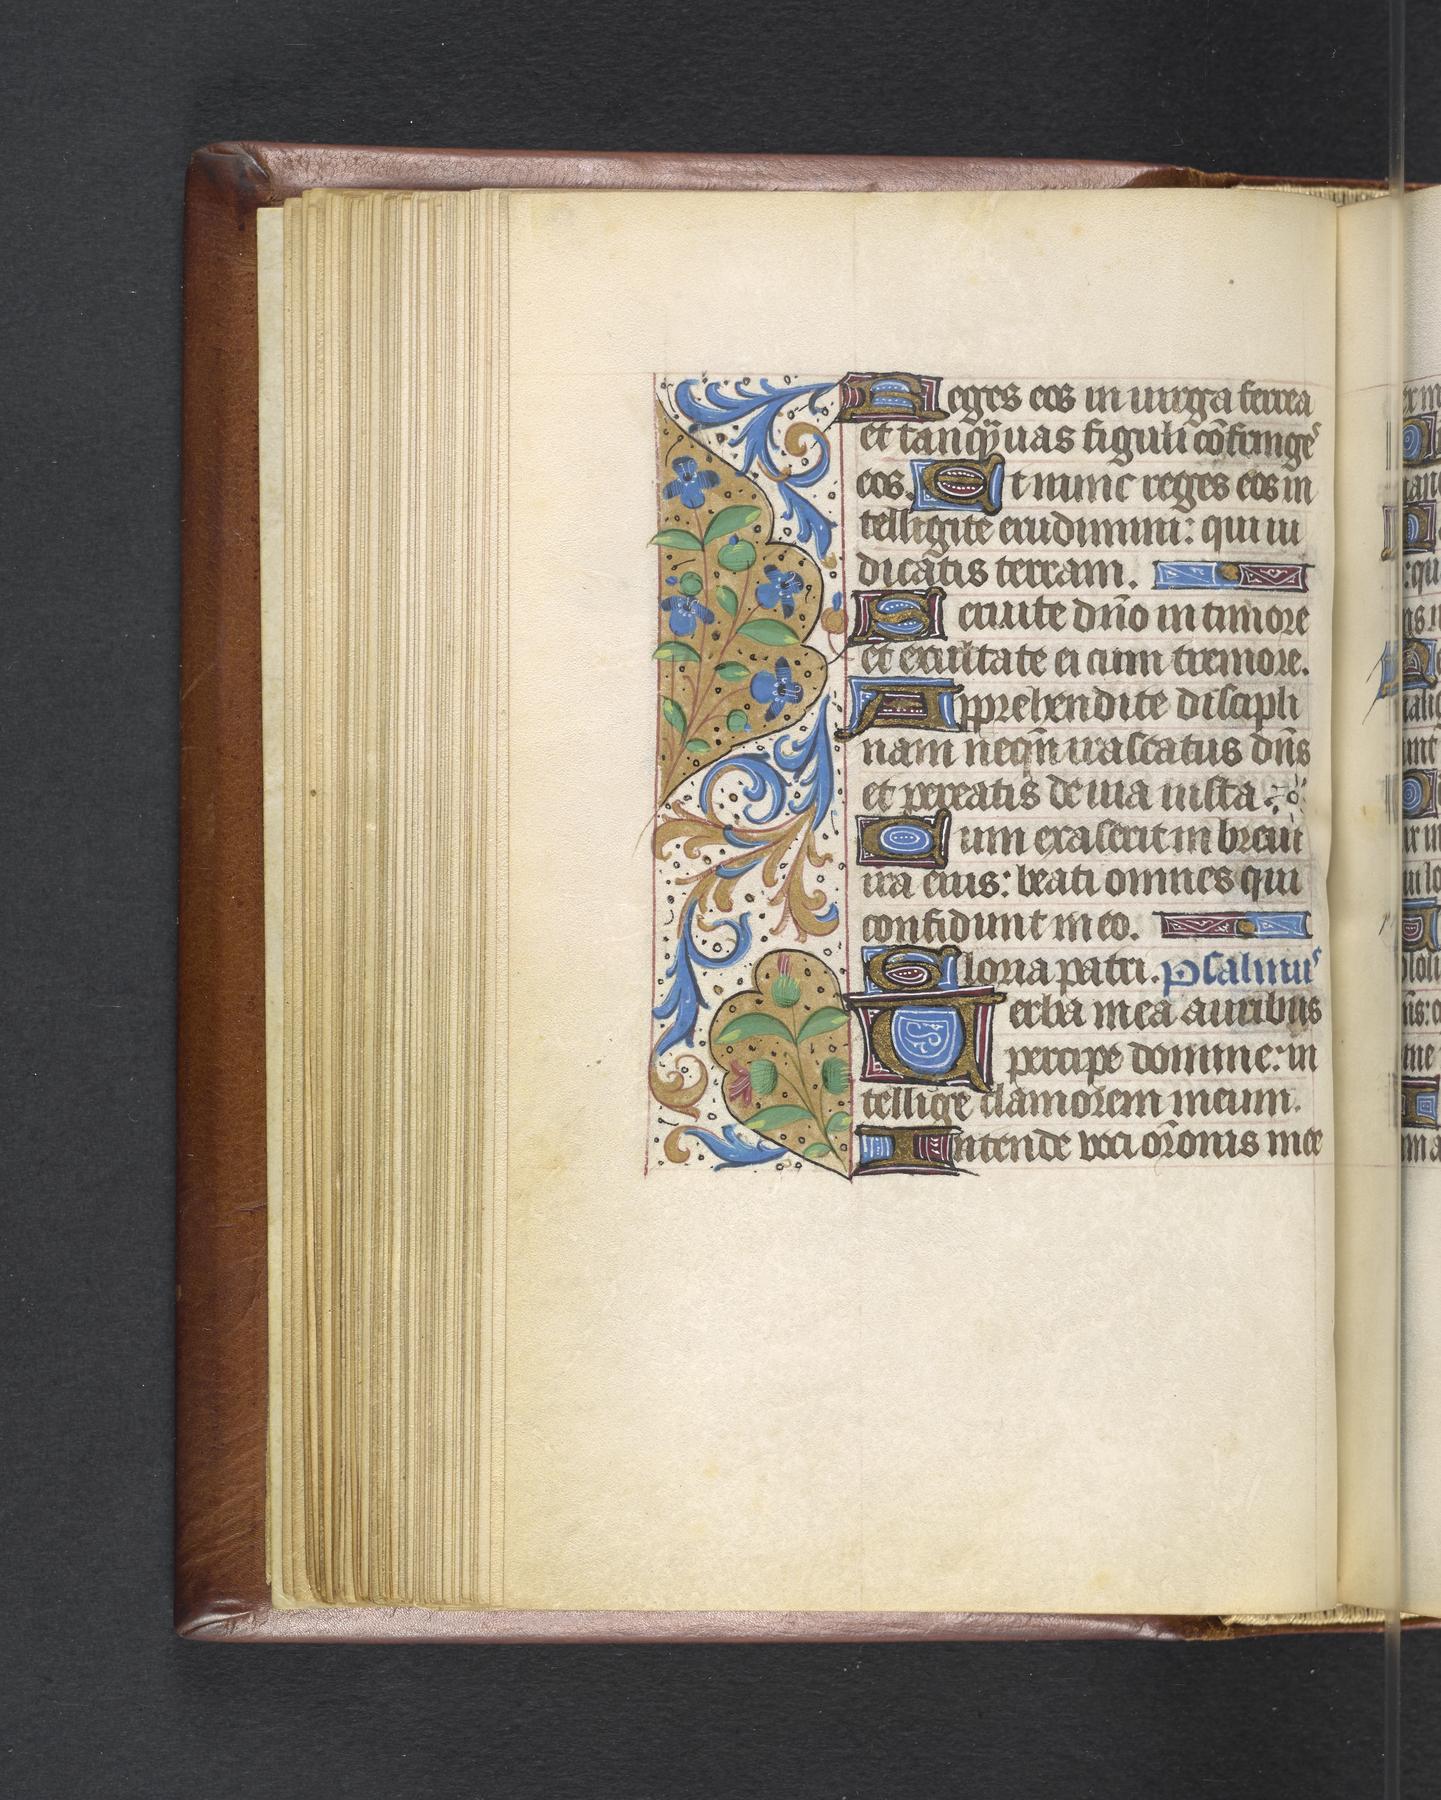 Reges eos in uirga ferrea
et tanq̄ uas figuli cōfringeˢ
eos. Et nunc reges eos in
telligite erudimini: qui iu
dicatis terram.
Seruite dn̄o in timore
et exultate ei cum tremore.
Apprehendite discipli
nam neqn̄ irascatus dn̄s
et pereatis de uia iusta
Cum exaserit in breui
ira eius: beati omnes qui
confidunt in eo.
Gloria patri. psalmuˢ
Verba mea auribus
percipe domine: in
tellige clamorem meum.
Intende voci or̄onis mee